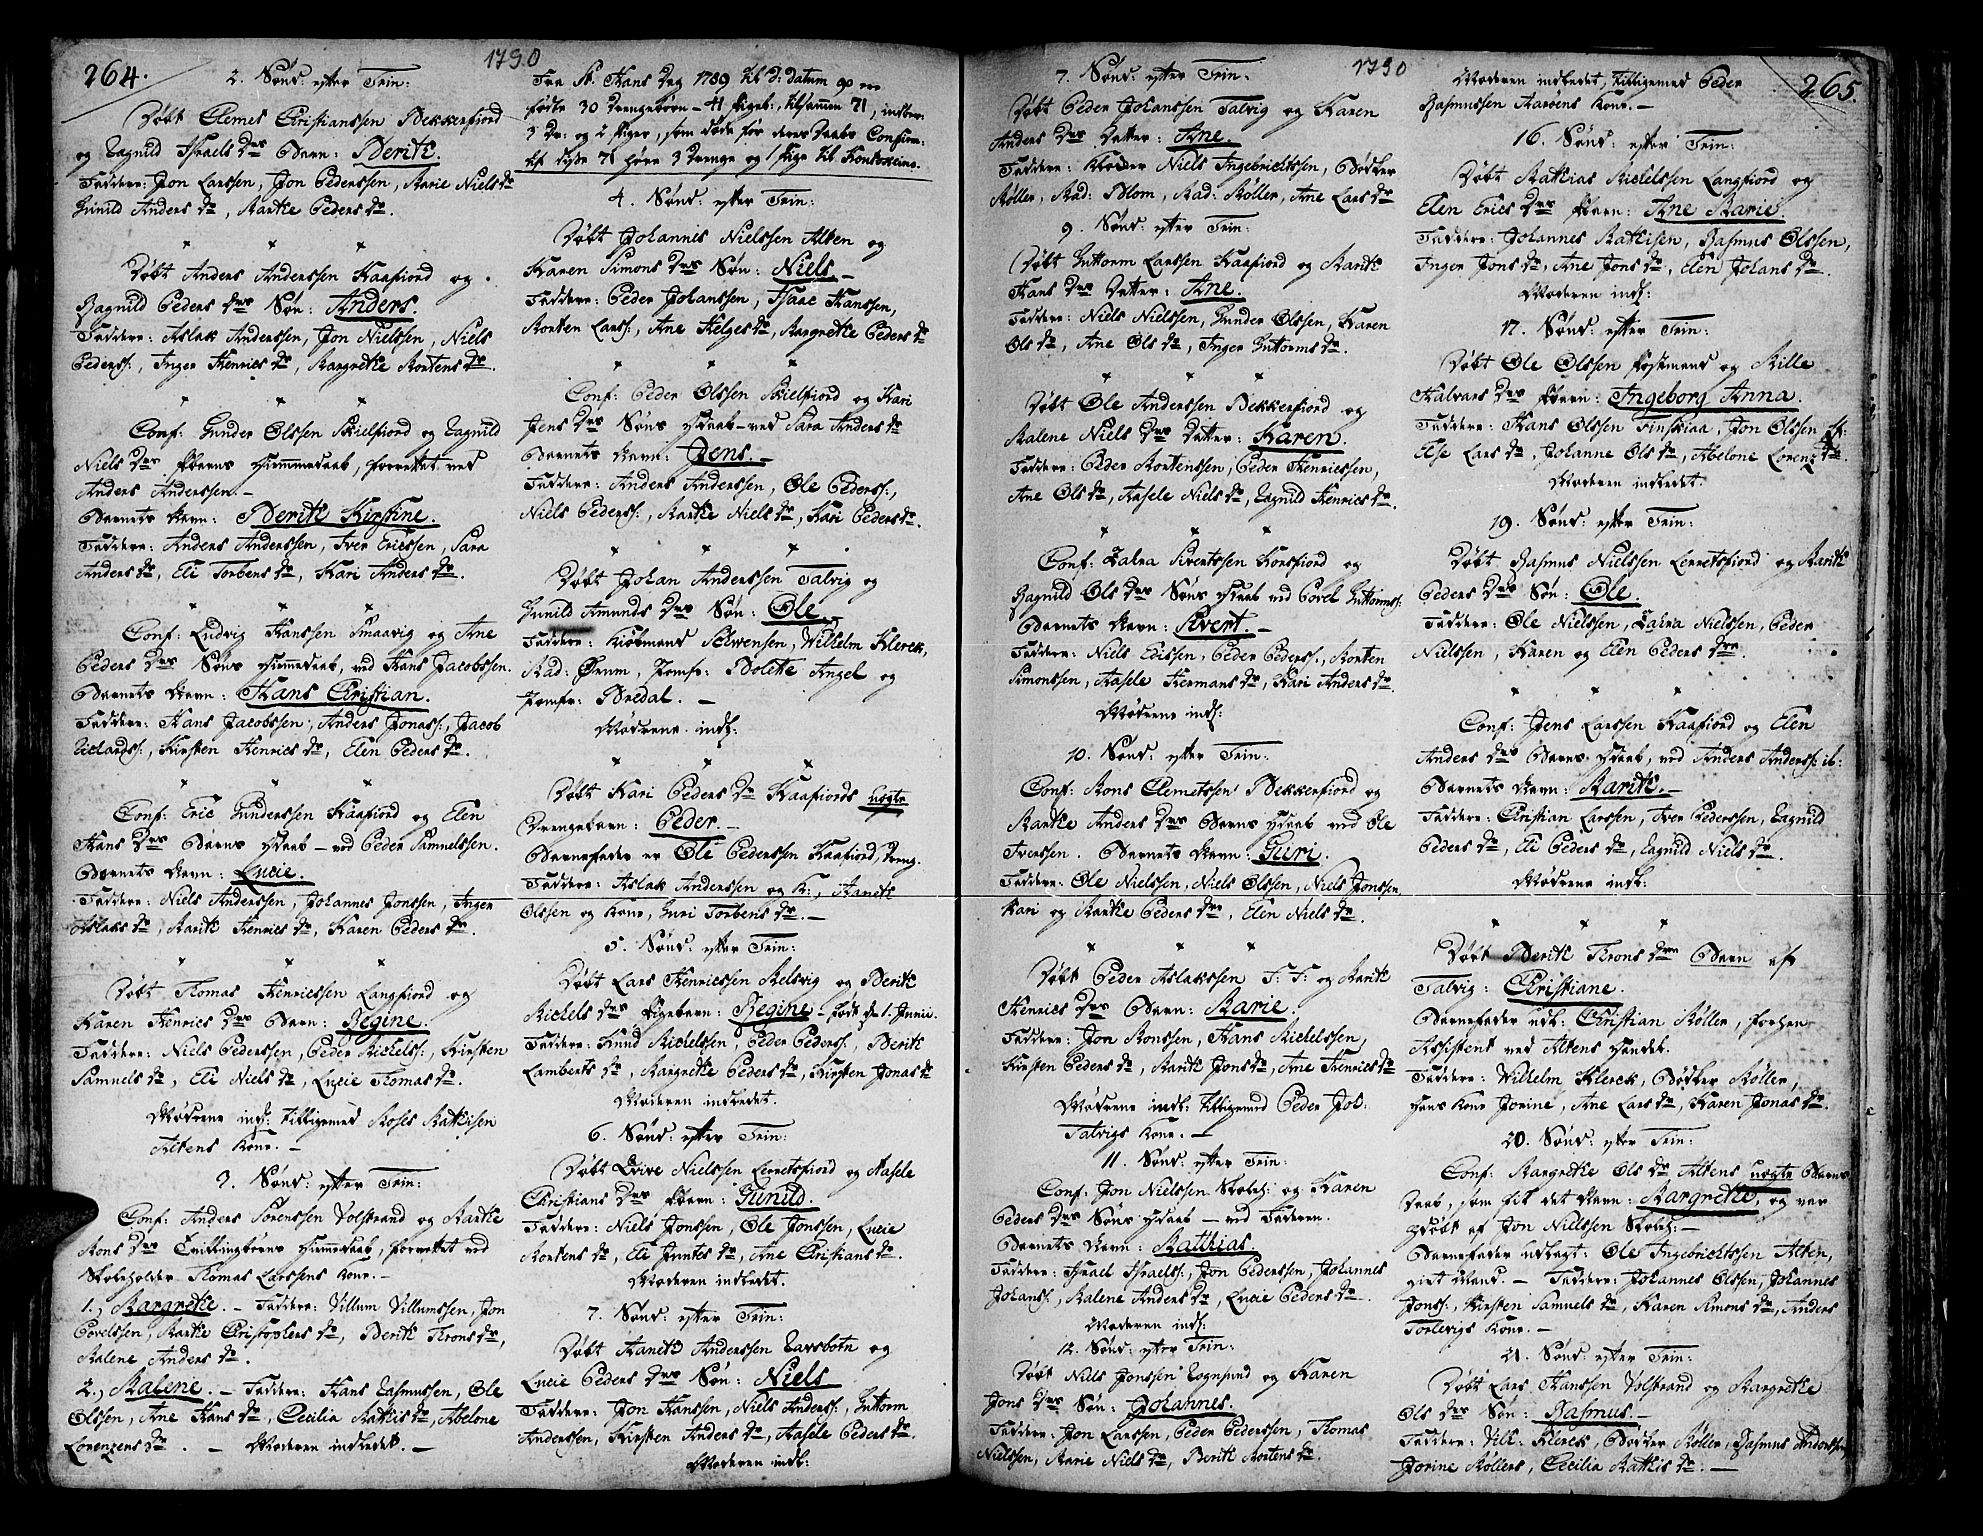 264.
1790
2. Sønd: efter Trin:
Døbt Clemet Christianssen Bekkerfiord
og Ragnild Israels Drs Barn: Berith.
Faddere: Jon Larssen, Jon Pederssen, Marie Niels Dr
Gunild Anders Dr, Marthe Peders Dr.
Døbt Anders Anderssen Kaafiord og
Ragnild Peders Drs Søn: Anders.
Faddere: Aslak Anderssen, Jon Nielssen, Niels
Pederss:, Inger Henrics Dr, Margrethe Mortens Dr.
Conf: Gunder Olssen Skielfiord og Ragnild
Niels Drs Barns Hiemmedaab, forrettet ved
Anders Anderssen.
Barnets Navn: Berith Kirstine.
Faddere: Anders Anderssen, Iver Ericssen, Sara
Anders Dr, Eli Torbens Dr, Kari Anders Dr.
Conf: Ludvig Hanssen Smaavig og Ane
Peders Drs Søns Hiemmedaab, ved Hans Jacobssen.
Barnets Navn: Hans Christian.
Faddere: Hans Jacobssen, Anders Jonass:, Jacob
Richardss:, Kirsten Henrics Dr, Elen Peders Dr.
Conf: Eric Gunderssen Kaafiord og Elen
Hans Drs Barns Hdaab - ved Peder Samuelssen.
Barnets Navn: Lucie.
Faddere: Niels Anderssen, Johannes Jonssen, Inger
Aslaks Dr, Marith Henrics Dr, Karen Peders Dr.
Døbt Thomas Henricssen Langfiord og
Karen Henrics Drs Barn: Regine.
Faddere: Niels Pederssen, Peder Michelss:, Kirsten
Samuels Dr, Eli Niels Dr, Lucie Thomas Dr.
Mødrene indl: tilligemed Moses Mathisen
Altens Kone. -
3. Sønd: efter Trin:
Conf: Anders Sørenssen Volstrand og Marthe
Mons Drs Tvillingbørns Hiemmedaab, forrettet ved
Skoleholder Thomas Larssens Kone. -
1., Margrethe. - Faddere: Villum Villumssen, Jon
Povelssen, Marthe Christophers Dr, Berith Throns Dr,
Malene Anders Dr.
2., Malene. - Faddere: Hans Rasmussen, Ole
Olssen, Ane Hans Dr, Cecilia Mathis Dr, Abelone
Lorenzens Dr. - Moderen indledet. -
Fra St. Hans Dag 1789 til d: datum ao ere
fødte 30 Drengebørn - 41 Pigeb:, tilsammen 71, indber:
3 Dr: og 2 Piger, som døde før deres Daabs Confirm:
Af disse 71 høre 3 Drenge og 1 Pige til Koutokeino.
4. Sønd: efter Trin:
Døbt Johannes Nielssen Alten og
Karen Simons Drs Søn: Niels. -
Faddere: Peder Johanssen, Isaac Hanssen,
Morten Larss:, Ane Helges Dr, Margrethe Peders Dr
Conf: Peder Olssen Skielfiord og Kari
Jens Drs Søns Hdaab - ved Sara Anders Dr
Barnets Navn: Jens. -
Faddere: Anders Anderssen, Ole Pederss:,
Niels Pederss:, Marthe Niels Dr, Kari Peders Dr.
Døbt Johan Anderssen Talvig og
Gunild Amunds Drs Søn: Ole.
Faddere: Kiøbmand Solwensen, Wilhelm Klerck,
Mad: Ørum, Jomfr: Bolette Angel og
Jomfr: Bredal. -
Mødrene indl:
Døbt Kari Peders Dr Kaafiords uegte
Drengebarn: Peder. -
Barnefader er Ole Pederssen Kaafiord, Dreng.
Faddere: Aslak Anderssen og K:, Haneth
Olssen og Kone, Guri Torbens Dr. -
5. Sønd: efter Trin:
Døbt Lars Henricssen Melsvig og Berith
Michels Drs Pigebarn: Regine - født d. 1. Junii.
Faddere: Knud Michelssen, Peder Pederss:, Berith
Lamberts Dr, Margrethe Peders Dr, Kirsten Jonas Dr
Moderen indledet.
6. Sønd: efter Trin:
Døbt Nielssen Lerretsfiord og Aasele
Christians Drs Barn: Gunild.
Faddere: Niels Jonssen, Ole Jonssen, Lucie
Mortens Dr, Eli Juntes Dr, Ane Christians Dr.
Moderen indledet.
7. Sønd: efter Trin:
Døbt Haneth Anderssen Ravsbotn og
Lucie Peders Drs Søn: Niels
Faddere: Jon Hanssen, Niels Anderss:, Guttorm
Anderssen, Kirsten Anders Dr, Aasele Peders Dr.
Moderen indl:
1790
265.
7. Sønd: efter Trin:
Døbt Peder Johanssen Talvig og Karen
Anders Drs Datter: Ane.
Faddere: Niels Ingebrichtssen, Bødker
Møller, Mad: Blom, Mad: Møller, Ane Lars Dr
9. Sønd: efter Trin:
Døbt Guttorm Larssen Kaafiord og Marith
Hans Drs Datter: Ane.
Faddere: Niels Nielssen, Gunder Olssen, Karen
Ols Dr, Ane Ols Dr, Inger Guttorms Dr.
Døbt Ole Anderssen Bekkerfiord og
Malene Niels Drs Datter: Karen.
Faddere: Peder Mortenssen, Peder Henricssen,
Ane Ols Dr, Aasele Niels Dr, Ragnild Henrics Dr.
Conf: Zakra Sivertssen Korsfiord og
Ragnild Ols Drs Søns Hdaab ved Povel Guttormss:
Barnets Navn: Sivert. -
Faddere: Niels Edissen, Peder Pederss:, Morten
Simonssen, Aasele Hermans Dr, Kari Anders Dr.
Mødrene indl:
10. Sønd: efter Trin:
Conf: Mons Clemetssen Bekkerfiord og
Marthe Anders Drs Barns Hdaab ved Ole
Iverssen. Barnets Navn: Guri.
Faddere: Ole Nielssen, Niels Olssen, Niels Jonssen,
Kari og Marthe Peders Drs, Elen Niels Dr.
Døbt Peder Aslakssen T. F: og Marith
Henrics Drs Barn: Marie.
Faddere: Jon Monssen, Hans Michelssen,
Kirsten Peders Dr, Marith Jons Dr, Ane Henrics Dr
Mødrene indl: tilligemed Peder Joh:
Talvigs Kone. -
11. Sønd: efter Trin:
Conf: Jon Nielssen Skoleh: og Karen
Peders Drs Søns Hdaab - ved Faderen.
Barnets Navn: Matthias.
Faddere: Israel Israelss:, Jon Pederssen, Johannes
Johanss:, Malene Anders Dr, Lucie Peders Dr.
Moderen indl:
12. Sønd: efter Trin:
Døbt Niels Jonssen Rognsund og Karen
Jons Drs Søn: Johannes.
Faddere: Jon Larssen, Peder Pederssen, Thomas
Nielssen, Marie Niels Dr, Berith Mortens Dr.
Moderen indledet, tilligemed Peder
Rasmussen Aarøens Kone. -
16. Sønd: efter Trin:
Døbt Mathias Michelssen Langfiord og
Elen Erics Drs Barn: Ane Marie.
Faddere: Johannes Mathisen, Rasmus Olssen,
Inger Jons Dr, Ane Jons Dr, Elen Johans Dr.
Moderen indl:
17. Sønd: efter Trin:
Døbt Ole Olssen Postmand og Mille
Halvars Drs Barn: Ingeborg Anna.
Faddere: Hans Olssen Finskiaa, Jon Olssen
Else Lars Dr, Johanne Ols Dr, Abelone Lorenz Dr.
Moderen indledet.
19. Sønd: efter Trin:
Døbt Rasmus Nielssen Lerretsfiord og Marith
Peders Drs Søn: Ole.
Faddere: Ole Nielssen, Zakra Nielssen, Peder
Nielssen, Karen og Elen Peders Drs.
Conf: Jens Larssen Kaafiord og Elen
Anders Drs Barns Hdaab, ved Anders Anderss: ib:
Barnets Navn: Marith. -
Faddere: Christian Larssen, Iver Pederssen, Ragnild
Peders Dr, Eli Peders Dr, Ragnild Niels Dr.
Mødrene indl:
Døbt Berith Throns Drs Barn af
Talvig: Christiane.
Barnefader udl: Christian Møller, forhen
Assistent ved Altens Handel.
Faddere: Wilhelm Klerck, Bødker Møller,
hans Kone Jorine, Ane Lars Dr, Karen Jonas Dr.
20. Sønd: efter Trin:
Conf: Margrethe Ols Dr Altens uegte Barns
Daab, som fik det Navn: Margrethe, og var
døbt af Jon Nielssen Skoleh: -
Barnefader udlagt: Ole Ingebrichtssen Alten,
gift Mand. - Faddere: Johannes Olssen, Johannes
Jonss:, Kirsten Samuels Dr, Karen Simons Dr, Anders
Torlevigs Kone. -
21. Sønd: efter Trin:
Døbt Lars Hanssen Volstrand og Margrethe
Ols Drs Søn: Rasmus. -
Faddere: Vill: Klerck, Bødker Møller, Rasmus Anderssen,
Jorine Møllers, Cecilia Mathis Dr. -